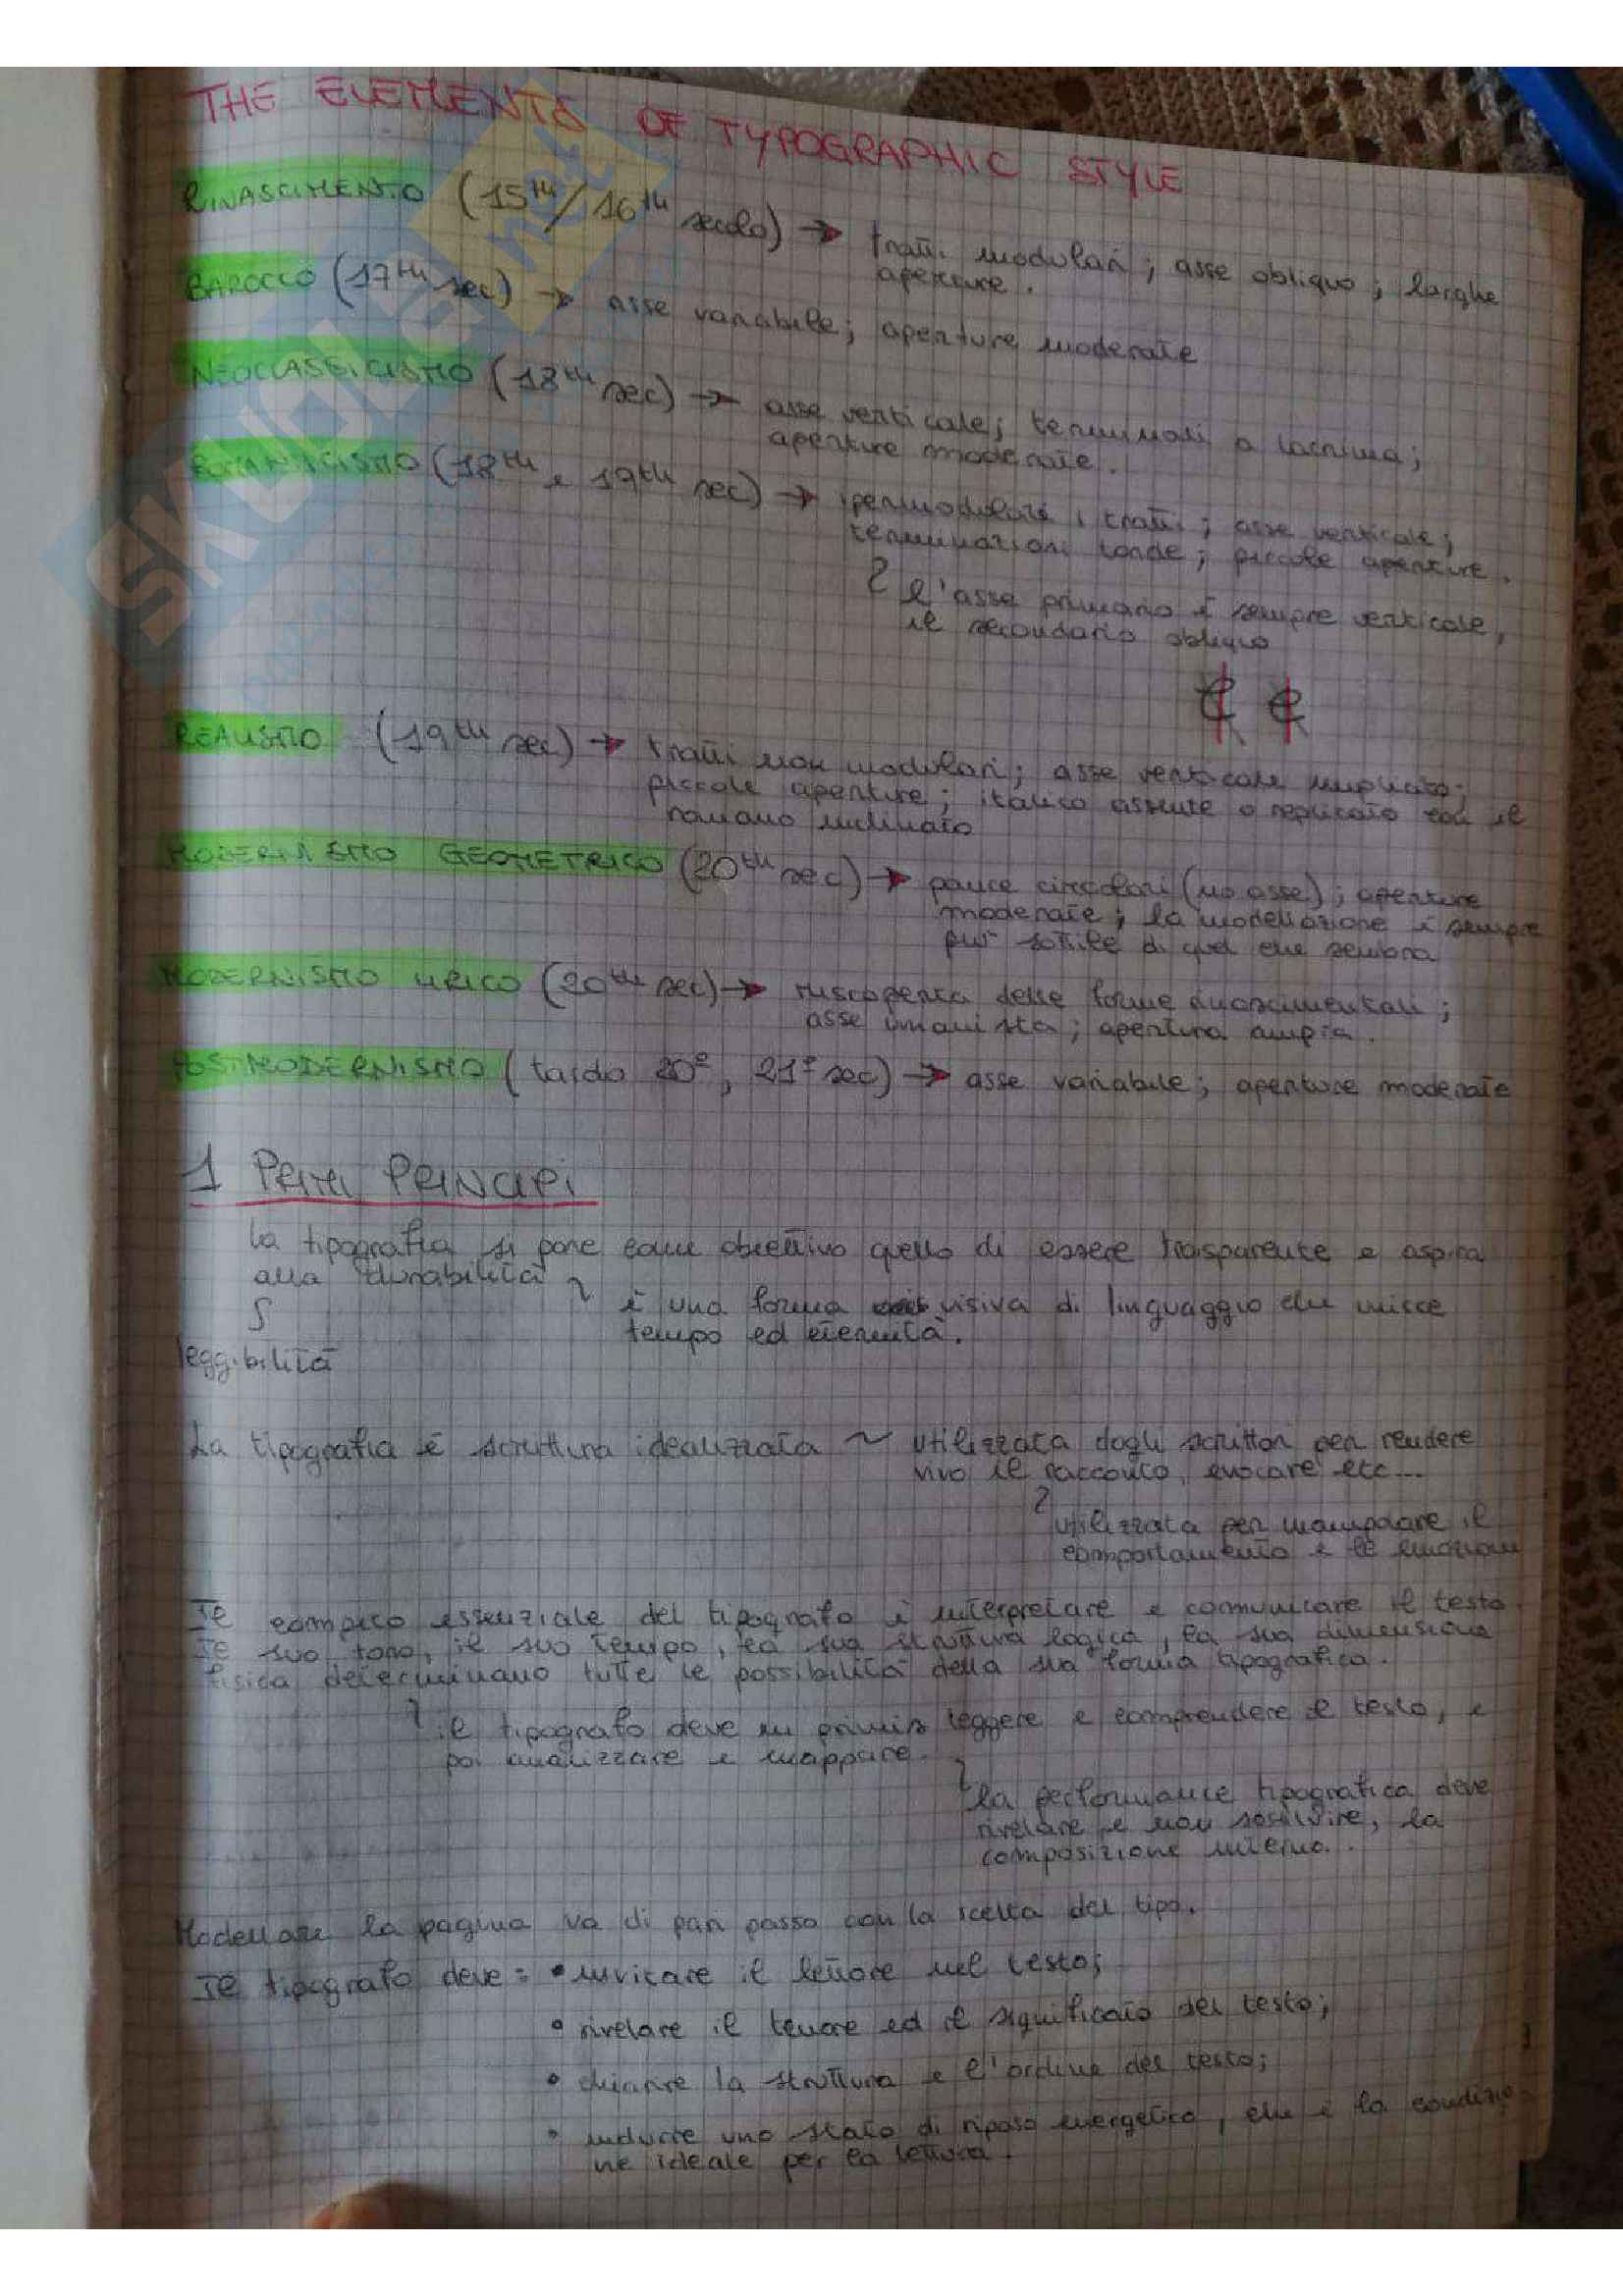 THE ELEMENTS OF TYPOGRAPHIC STYLE
RINASCIMENTO (15th/16th secolo) → tratti modulari; asse obliquo; larghe
aperture.
BAROCCO (17th sec) → asse variabile; aperture moderate
NEOCLASSICISMO (18th sec) → asse verticale; terminali a lacrima;
aperture moderate.
ROMANTICISMO (18th e 19th sec) → ipermodulati i tratti; asse verticale;
terminazioni tonde; piccole aperture.
l'asse primario è sempre verticale,
il secondario obliquo
e e
REALISMO (19th sec) → tratti non modulari; asse verticale implicito;
piccole aperture; italico assente o replicato con il
romano inclinato
MODERNISMO GEOMETRICO (20th sec) → pance circolari (no asse); aperture
moderate; la modellazione è sempre
più sottile di quel che sembra
MODERNISMO LIRICO (20th sec) → riscoperta delle forme rinascimentali;
asse umanista; apertura ampia.
POSTMODERNISMO (tardo 20º, 21º sec) → asse variabile; aperture moderate
1 PRIMI PRINCIPI
la tipografia si pone come obiettivo quello di essere trasparente e aspira
alla durabilità
è una forma visiva di linguaggio che unisce
tempo ed eternità.
leggibilità
La tipografia è scrittura idealizzata ~ utilizzata dagli scrittori per rendere
vivo il racconto, evocare etc...
utilizzata per manipolare il
comportamento e le emozioni
Il compito essenziale del tipografo è interpretare e comunicare il testo.
Il suo tono, il suo tempo, la sua struttura logica, la sua dimensione
fisica determinano tutte le possibilità della sua forma tipografica.
il tipografo deve in primis leggere e comprendere il testo, e
poi analizzare e mappare.
la performance tipografica deve
rivelare e non sostituire, la
composizione interna.
Modellare la pagina va di pari passo con la scelta del tipo.
Il tipografo deve: • invitare il lettore nel testo;
• rivelare il tenore ed il significato del testo;
• chiarire la struttura e l'ordine del testo;
• indurre uno stato di riposo energetico, che è la condizio-
ne ideale per la lettura.
SKUOLA.net